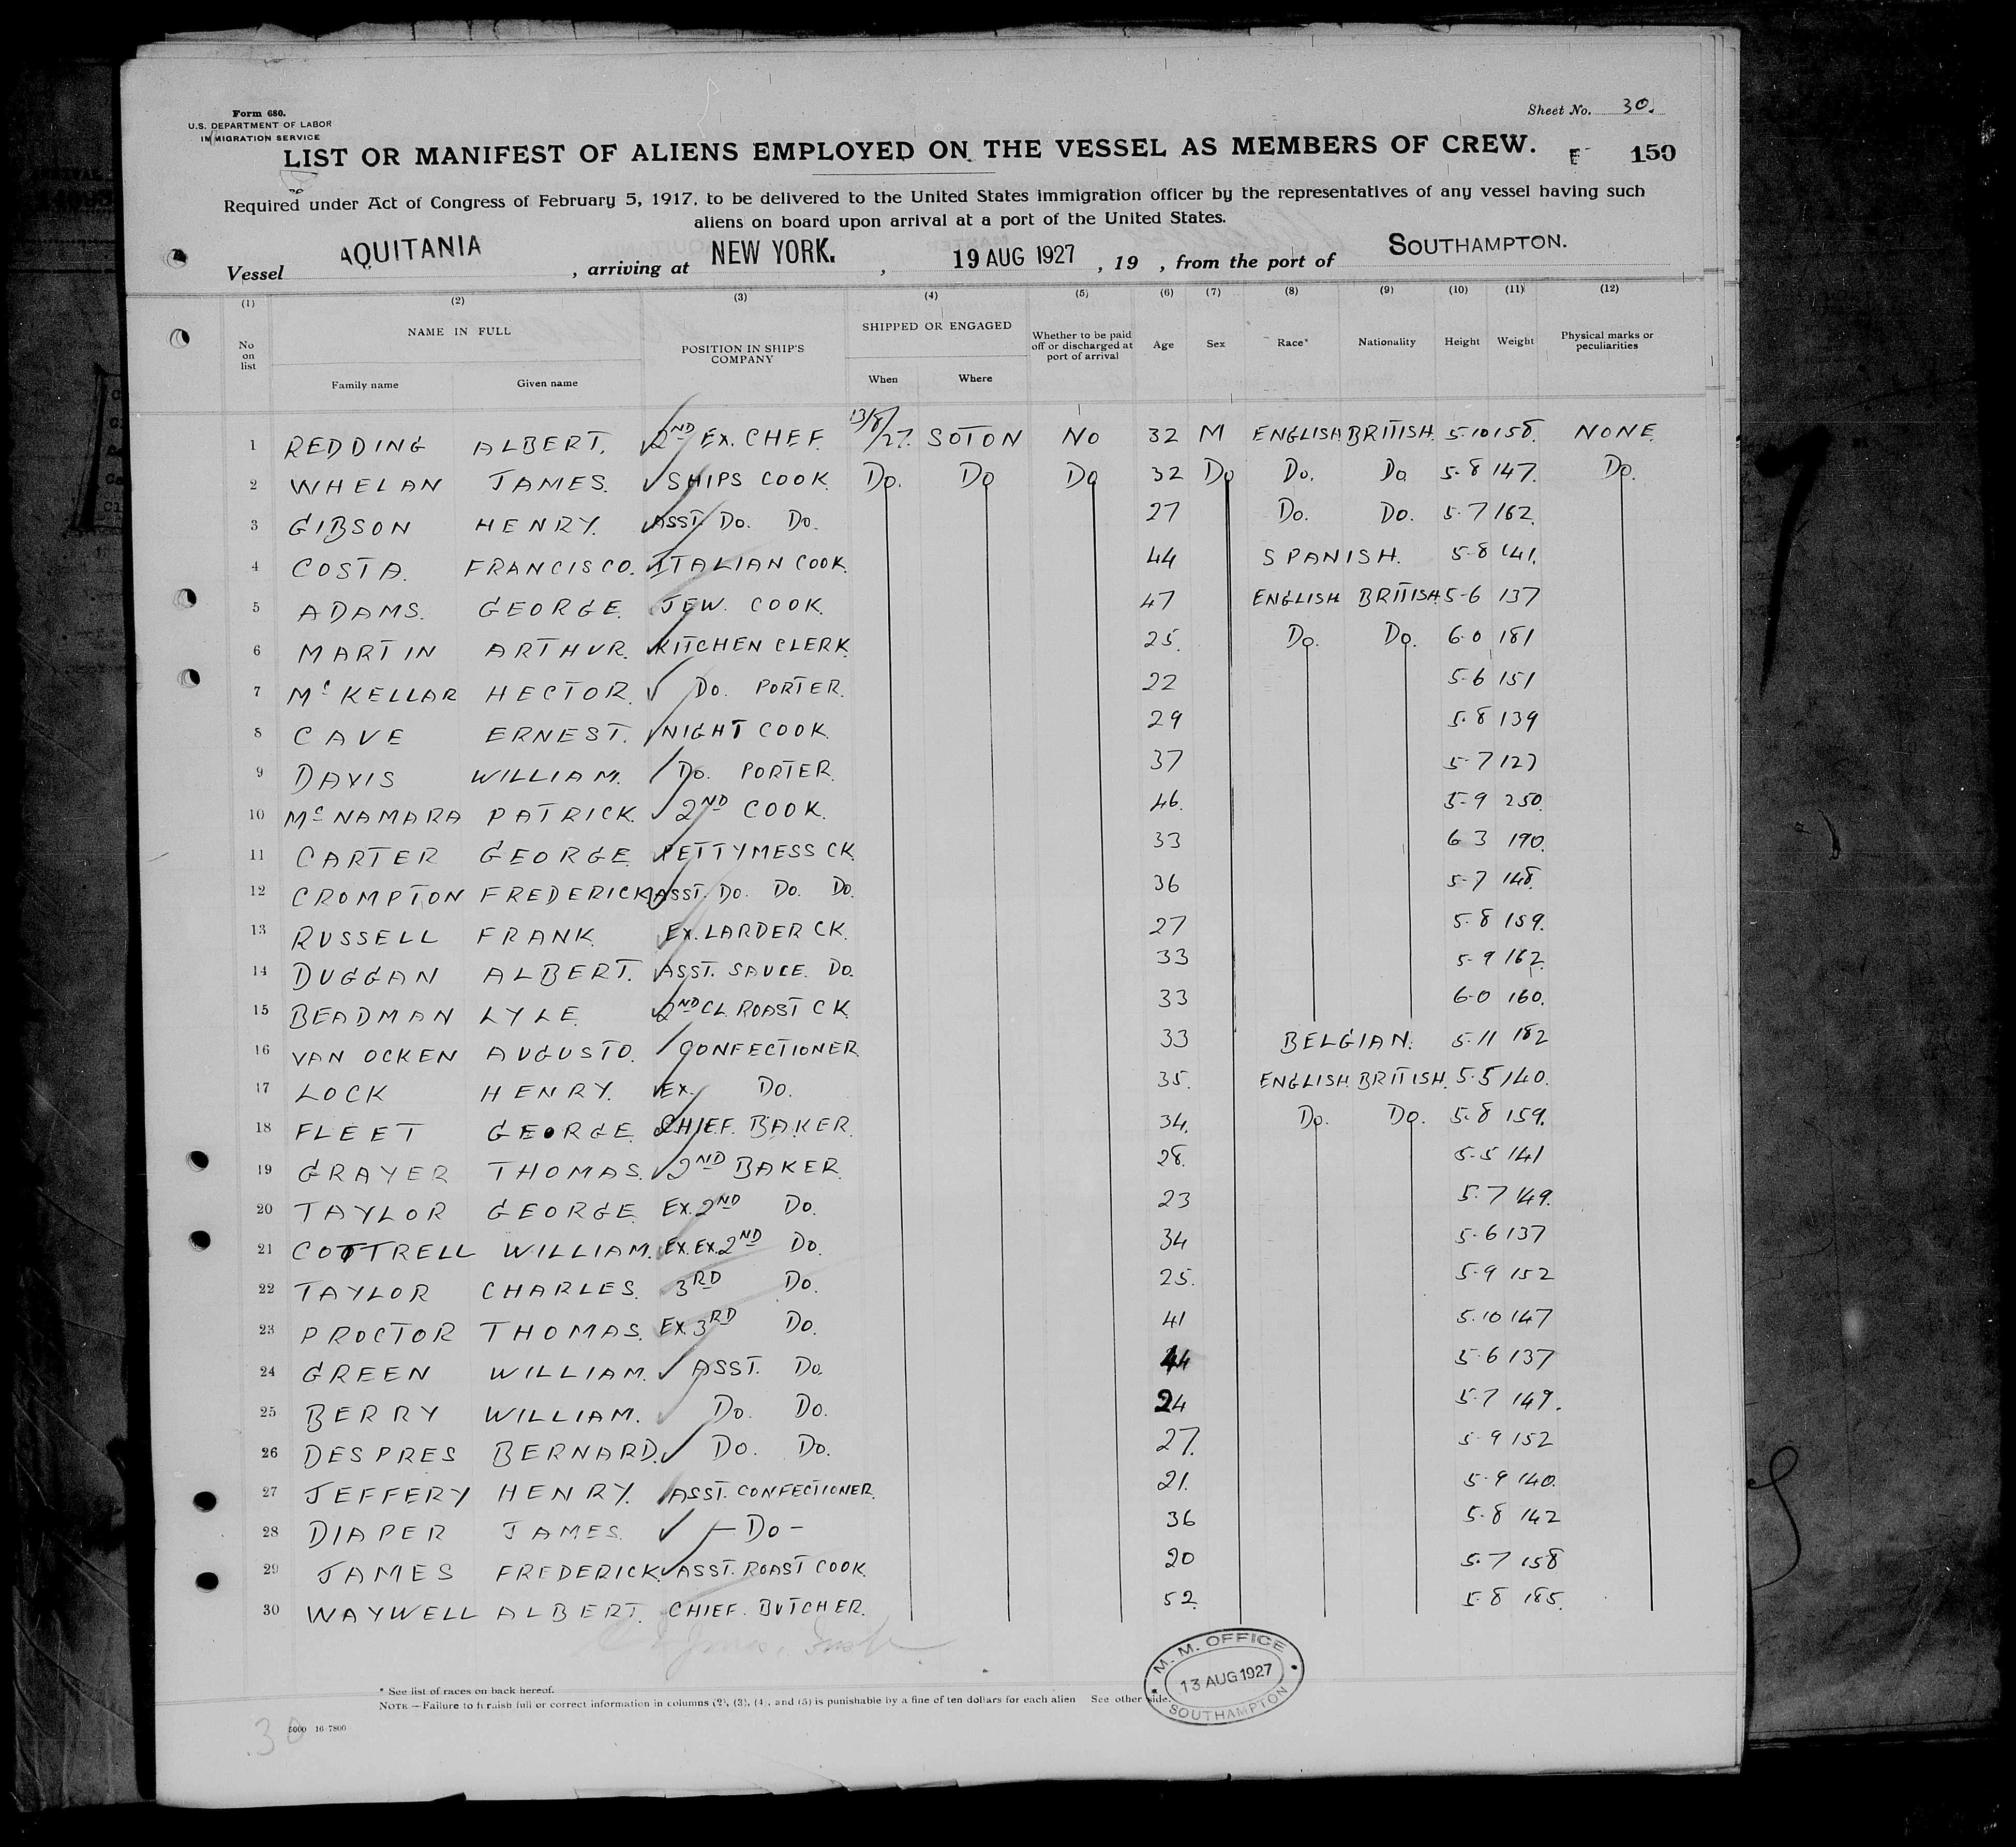 Form 680.
U.S. DEPARTMENT OF LABOR
IMMIGRATION SERVICE
Sheet No. 30.
LIST OR MANIFEST OF ALIENS EMPLOYED ON THE VESSEL AS MEMBERS OF CREW.
150
Required under Act of Congress of February 5, 1917, to be delivered to the United States immigration officer by the representatives of any vessel having such
aliens on board upon arrival at a port of the United States.
Vessel AQUITANIA, arriving at NEW YORK., 19 AUG 1927, 19 , from the port of SOUTHAMPTON.
(1) (2) (3) (4) (5) (6) (7) (8) (9) (10) (11) (12)
No on list NAME IN FULL POSITION IN SHIP'S COMPANY SHIPPED OR ENGAGED Whether to be paid off or discharged at port of arrival Age Sex Race* Nationality Height Weight Physical marks or peculiarities
Family name Given name When Where
1 REDDING ALBERT. 2ND EX. CHEF. 13/8/27. SOTON NO 32 M ENGLISH BRITISH. 5-10 158. NONE.
2 WHELAN JAMES. SHIPS COOK. Do. Do Do 32 Do Do. Do 5-8 147. Do.
3 GIBSON HENRY. ASST. Do. Do. 27 Do. Do. 5-7 162.
4 COSTA. FRANCISCO. ITALIAN COOK. 44 SPANISH. 5-8 141.
5 ADAMS. GEORGE. JEW. COOK. 47 ENGLISH BRITISH 5-6 137
6 MARTIN ARTHUR. KITCHEN CLERK. 25. Do. Do. 6-0 181
7 McKELLAR HECTOR. Do. PORTER. 22 5-6 151
8 CAVE ERNEST. NIGHT COOK. 29 5-8 139
9 DAVIS WILLIAM. Do. PORTER. 37 5-7 127
10 McNAMARA PATRICK. 2ND COOK. 46. 5-9 250.
11 CARTER GEORGE. PETTYMESS CK. 33 6 3 190.
12 CROMPTON FREDERICK ASST. Do. Do. Do. 36 5-7 148.
13 RUSSELL FRANK. EX. LARDER CK. 27 5-8 159.
14 DUGGAN ALBERT. ASST. SAUCE. Do. 33 5-9 162.
15 BEADMAN LYLE. 2ND CL. ROAST CK. 33 6-0 160.
16 VAN OCKEN AUGUSTO. CONFECTIONER. 33 BELGIAN. 5-11 182
17 LOCK HENRY. EX. Do. 35. ENGLISH. BRITISH. 5.5 140.
18 FLEET GEORGE. CHIEF. BAKER. 34. Do. Do. 5-8 159.
19 GRAYER THOMAS. 2ND BAKER. 28. 5-5 141
20 TAYLOR GEORGE. EX. 2ND Do. 23 5.7 149.
21 COTTRELL WILLIAM. EX. EX. 2ND Do. 34 5-6 137
22 TAYLOR CHARLES. 3RD Do. 25. 5-9 152
23 PROCTOR THOMAS. EX. 3RD Do. 41 5.10 147
24 GREEN WILLIAM. ASST. Do. 44 5-6 137
25 BERRY WILLIAM. Do. Do. 24 5-7 149.
26 DESPRES BERNARD. Do. Do. 27. 5-9 152
27 JEFFERY HENRY. ASST. CONFECTIONER. 21. 5-9 140.
28 DIAPER JAMES. -Do- 36 5-8 142
29 JAMES FREDERICK. ASST. ROAST COOK. 20 5.7 158
30 WAYWELL ALBERT. CHIEF. BUTCHER. 52. 5-8 185.
M. M. OFFICE
13 AUG 1927
SOUTHAMPTON
* See list of races on back hereof.
NOTE.—Failure to furnish full or correct information in columns (2), (3), (4), and (5) is punishable by a fine of ten dollars for each alien See other side.
5000 16-7800
30